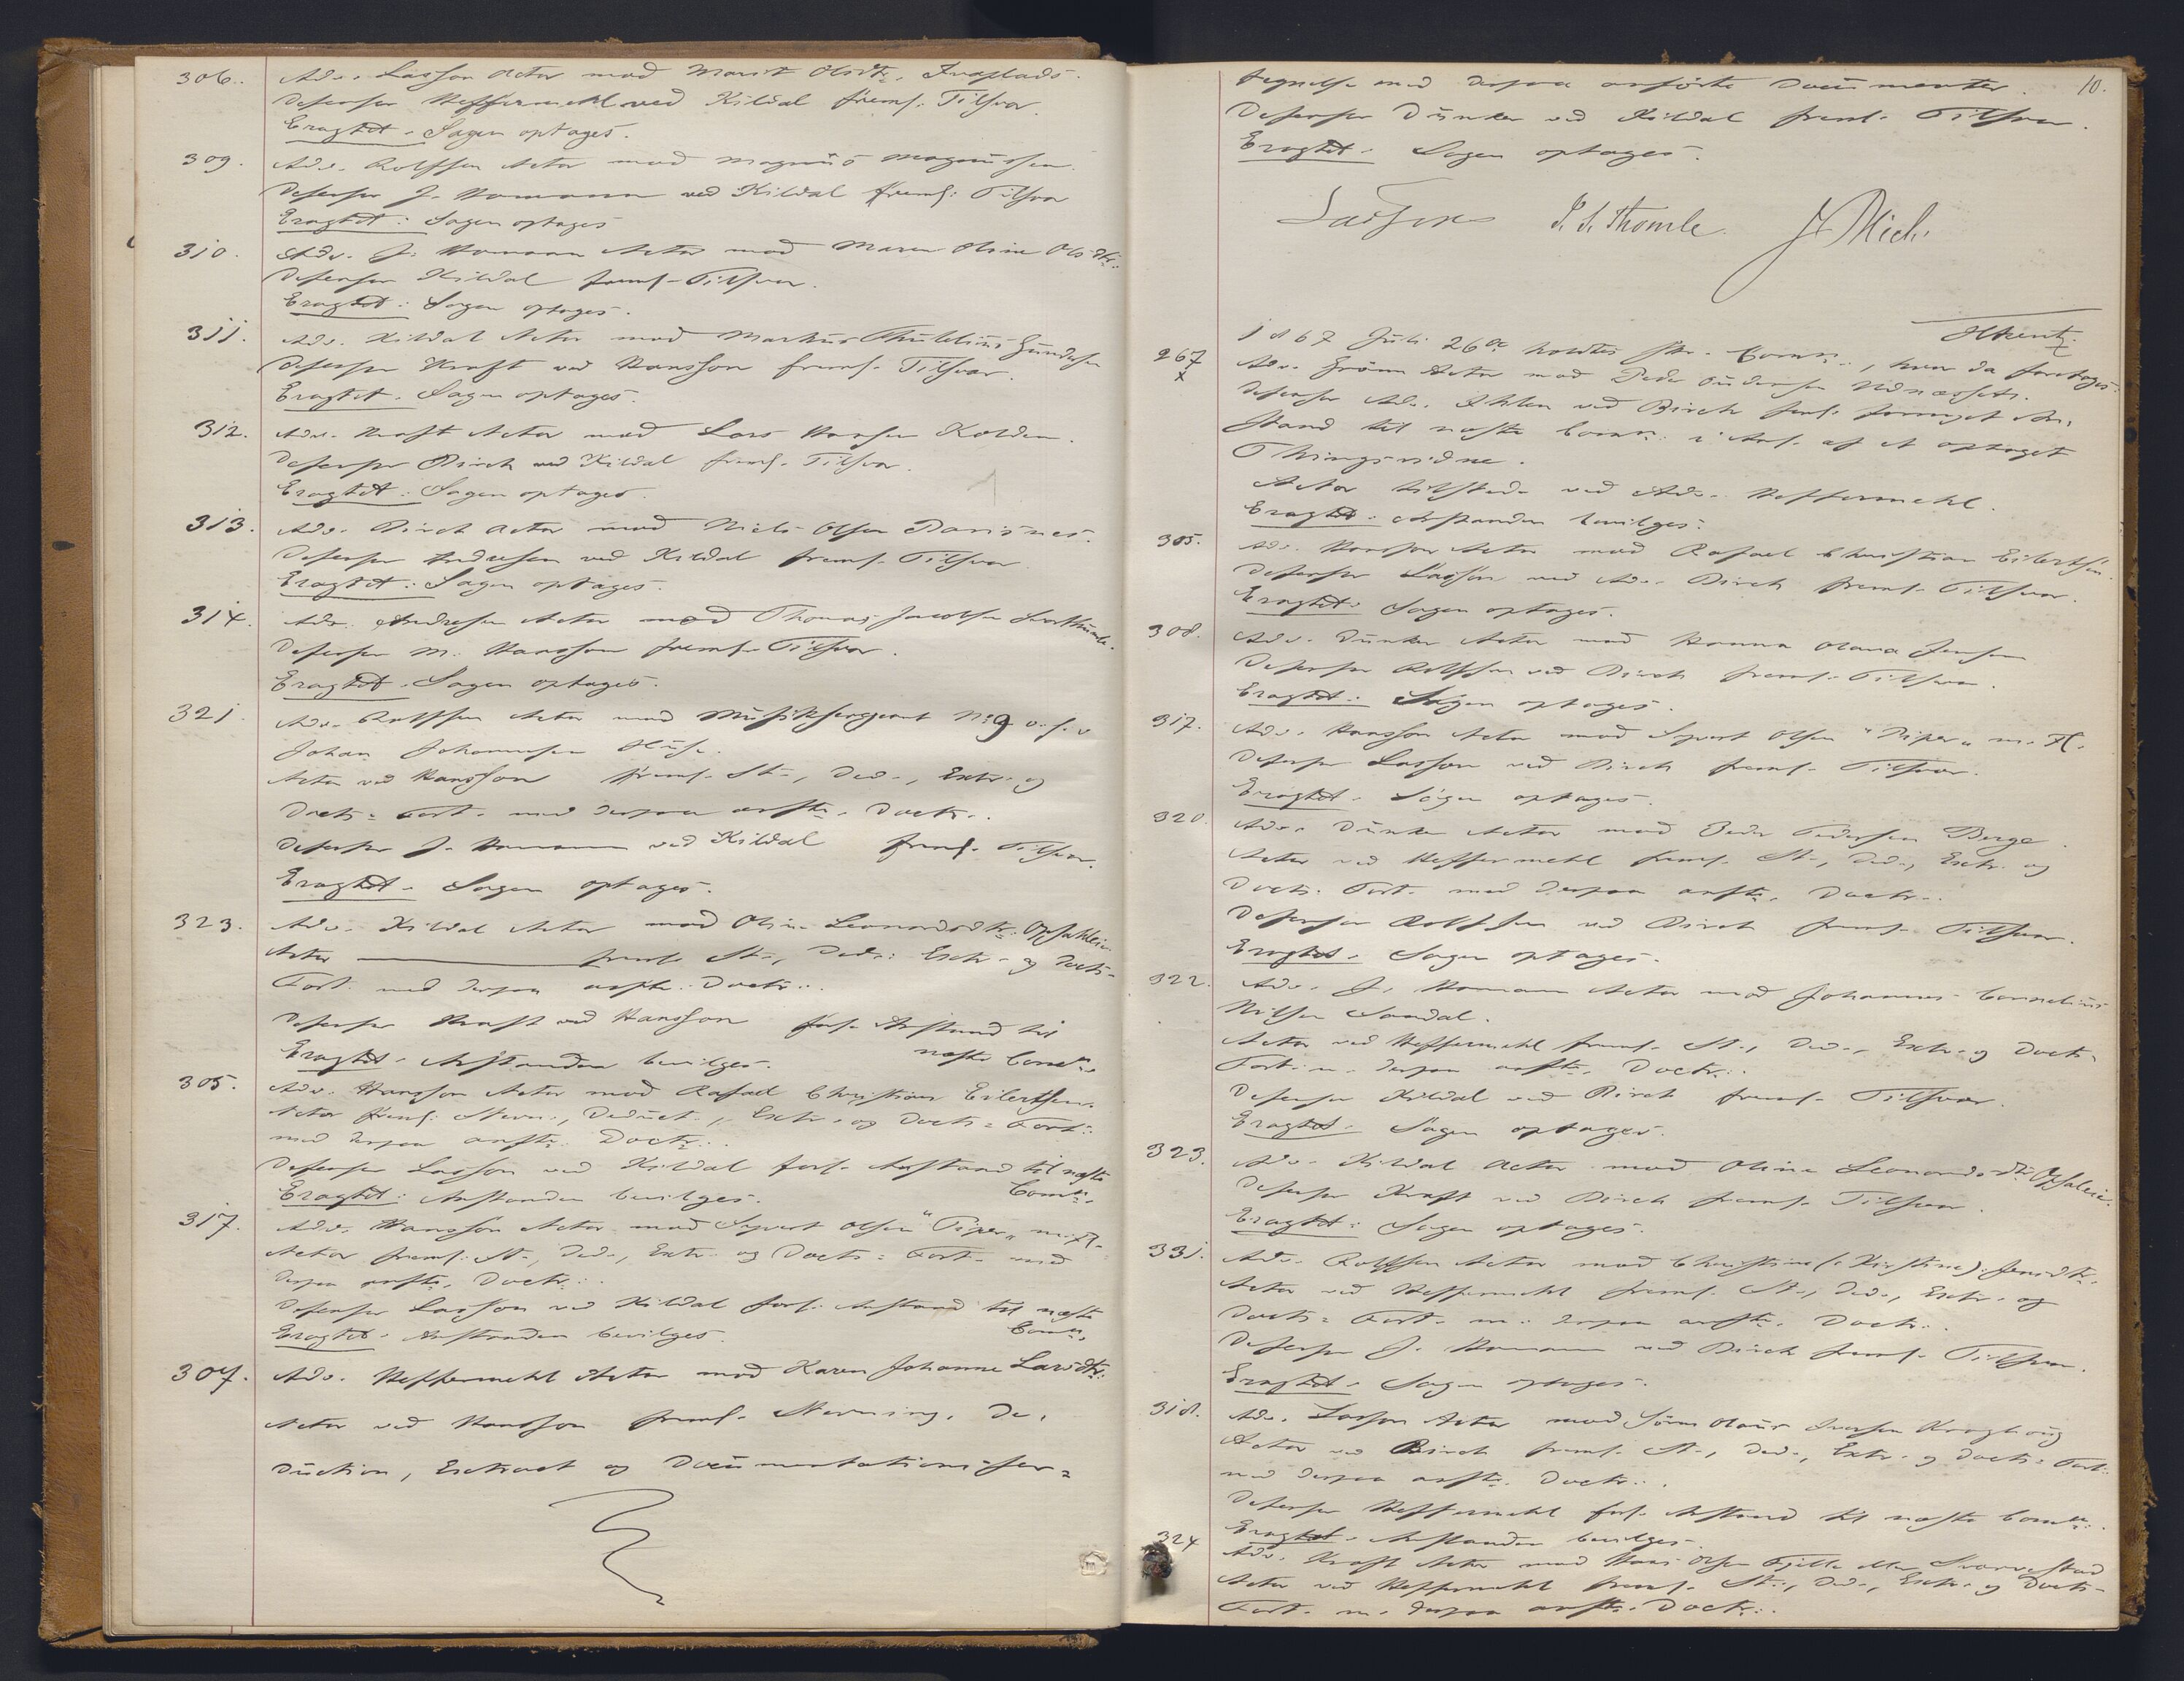 306. Adv. Lasson Actor mod Marit Olsdtr.
Defensor Heffermehl ved Kildal freml. Tilsvar.
Eragtet: Sagen optages.
309. Adv. Rolffsen Actor mod Magnus Magnussen.
Defensor J. Homann ved Kildal freml: Tilsvar
Eragtet: Sagen optages
310. Adv. J. Homann Actor mod Maren Oline Olsdtr:
Defensor Kildal freml. Tilsvar.
Eragtet: Sagen optages.
311. Adv. Kildal Actor mod Markus Thulelius Gundersen
Defensor Kraft ved Hansson freml. Tilsvar.
Eragtet. Sagen optages.
312. Adv. Kraft Actor mod Lars Hansen Kolden.
Defensor Birch ved Kildal freml. Tilsvar.
Eragtet: Sagen optages.
313. Adv. Birch Actor mod Niels Olsen
Defensor Andresen ved Kildal freml. Tilsvar
Eragtet: Sagen optages.
314. Adv. Andresen Actor mod Thomas Jacobsen
Defensor M. Hansson freml. Tilsvar.
Eragtet. Sagen optages.
321. Adv. Rolffsen Actor mod Musiksergeant No 9
Johan Johannesen
Actor ved Hansson freml. St., Ded., Extr. og
Docts= Fort. med derpaa anfte. Doctr..
Defensor J. Homann ved Kildal freml. Tilsvar.
Eragtet. Sagen optages.
323. Adv. Kildal Actor mod Oline Leonardsdtr. Opsahleie.
Actor ——— freml. St., Ded.: Extr. og Docts=
Fort. med derpaa anfte. Doctr..
Defensor Kraft ved Hansson forl. Anstand til
Eragtet. Anstanden bevilges. næste Comn.
305. Adv. Hansson Actor mod Rafael Christian Eilertsen.
Actor freml: Stevn., Deduct., Extr. og Docts= Fort:
med derpaa anfte. Doctr..
Defensor Lasson ved Kildal forl. Anstand til næste
Eragtet: Anstanden bevilges. Comn.
317. Adv. Hansson Actor mod Sivert Olsen "Piper" m. Fl.
Actor freml: St., Ded., Extr. og Docts= Fort. med
derpaa anfte. Doctr..
Defensor Lasson ved Kildal forl. Anstand til næste
Eragtet. Anstanden bevilges. Comn.
307. Adv. Heffermehl Actor mod Karen Johanne Larsdtr:
Actor ved Hansson freml. Stevning, De=
duction, Extract og Documentationsfor=
10.
tegnelse med derpaa anførte Documenter.
Defensor Dunker ved Kildal freml. Tilsvar.
Eragtet. Sagen optages.
Lasson I. S. Thomle. J Mich.
1867 Juli 26de holdtes Comn., hvor da foretoges
267 x Adv. Grønn Actor mod Peder Andersen
Defensor Adv. Ihlen ved Birch forl. fornyet An=
stand til næste Comn. i Anl. af et optaget
Thingsvidne.
Actor tilstede ved Adv. Heffermehl.
Eragtet: Anstanden bevilges.
305. Adv. Hansson Actor mod Rafael Christian Eilertsen.
Defensor Lasson ved Adv. Birch freml. Tilsvar.
Eragtet: Sagen optages.
308. Adv. Dunker Actor mod Hanna Olava Jensen
Defensor Rolffsen ved Birch freml. Tilsvar.
Eragtet: Sagen optages.
317. Adv. Hansson Actor mod Sivert Olsen "Piper" m. Fl.
Defensor Lasson ved Birch freml. Tilsvar.
Eragtet. Sagen optages.
320. Adv. Dunker Actor mod Peder Pedersen Berge.
Actor ved Heffermehl freml. St., Ded., Extr. og
Docts. Fort. med derpaa anfte. Doctr..
Defensor Rolffsen ved Birch freml. Tilsvar.
Eragtet. Sagen optages.
322. Adv. J. Homann Actor mod Johannes Cornelius
Nilsen Sandal.
Actor ved Heffermehl freml. St., Ded., Extr. og Docts=
Fort. m. derpaa anfte. Doctr..
Defensor Kildal ved Birch freml. Tilsvar.
Eragtet. Sagen optages.
323. Adv. Kildal Actor mod Oline Leonardsdtr. Opsaleie.
Defensor Kraft ved Birch freml. Tilsvar.
Eragtet: Sagen optages.
331. Adv. Rolffsen Actor mod Christine (: Kirstine :) Jensdtr.
Actor ved Heffermehl freml. St., Ded., Extr. og
Docts= Fort. m. derpaa anfte. Doctr..
Defensor J. Homann ved Birch freml. Tilsvar.
Eragtet. Sagen optages.
318. Adv. Lasson Actor mod Sören Olaus Iversen
Actor ved Birch freml. St., Ded., Extr. og Docts= Fort:
med derpaa anfte. Doctr..
Defensor Heffermehl forl. Anstand til næste Comn.
Eragtet. Anstanden bevilges.
324 Adv. Kraft Actor mod Hans Olsen
Actor ved Heffermehl freml. St., Ded., Extr. og Docts=
Fort. m. derpaa anfte. Doctr..